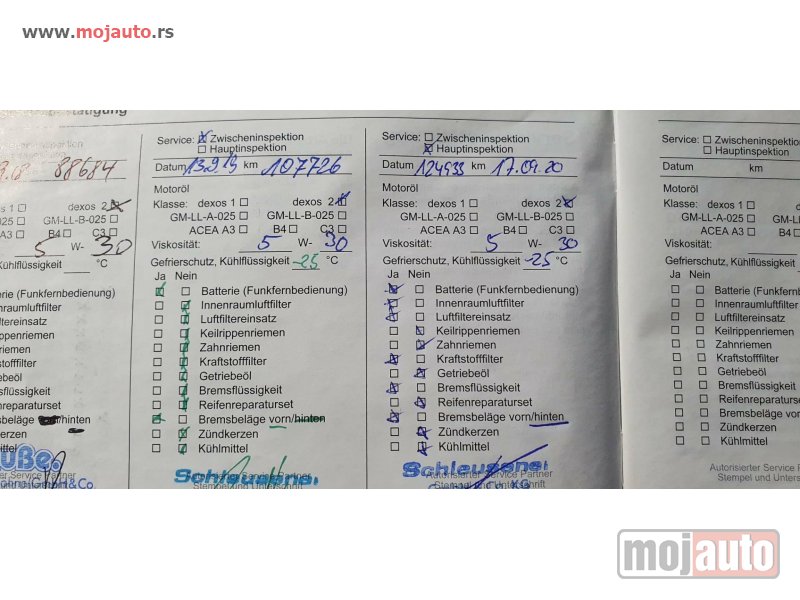 www.mojauto.rs
88684
dexos 2
025 GM-LL-B-025
A3 B4 C3
5 W- 30
Kühlflüssigkeit °C
hinten
Service: Zwischeninspektion
Hauptinspektion
Datum 13.9.19 km 107726
Motoröl
Klasse: dexos 1 dexos 2
GM-LL-A-025 GM-LL-B-025
ACEA A3 B4 C3
Viskosität: 5 W- 30
Gefrierschutz, Kühlflüssigkeit -25 °C
Ja Nein
Batterie (Funkfernbedienung)
Innenraumluftfilter
Luftfiltereinsatz
Keilrippenriemen
Zahnriemen
Kraftstofffilter
Getriebeöl
Bremsflüssigkeit
Reifenreparaturset
Bremsbeläge vorn/hinten
Zündkerzen
Kühlmittel
Autorisierter Service Partner
Stempel und Unterschrift
Service: Zwischeninspektion
Hauptinspektion
Datum 124933 km 17.09.20
Motoröl
Klasse: dexos 1 dexos 2
GM-LL-A-025 GM-LL-B-025
ACEA A3 B4 C3
Viskosität: 5 W- 30
Gefrierschutz, Kühlflüssigkeit -25 °C
Ja Nein
Batterie (Funkfernbedienung)
Innenraumluftfilter
Luftfiltereinsatz
Keilrippenriemen
Zahnriemen
Kraftstofffilter
Getriebeöl
Bremsflüssigkeit
Reifenreparaturset
Bremsbeläge vorn/hinten
Zündkerzen
Kühlmittel
Autorisierter Service Partner
Stempel und Unterschrift
Service: Zwischeninspektion
Hauptinspektion
Datum km
Motoröl
Klasse: dexos 1 dexos
GM-LL-A-025 GM-LL-B-
ACEA A3 B4
Viskosität: W-
Gefrierschutz, Kühlflüssigkeit
Ja Nein
Batterie (Funkfernbedienung)
Innenraumluftfilter
Luftfiltereinsatz
Keilrippenriemen
Zahnriemen
Kraftstofffilter
Getriebeöl
Bremsflüssigkeit
Reifenreparaturset
Bremsbeläge vorn/hinten
Zündkerzen
Kühlmittel
Autorisierter Service P
Stempel und Untersc
mojauto